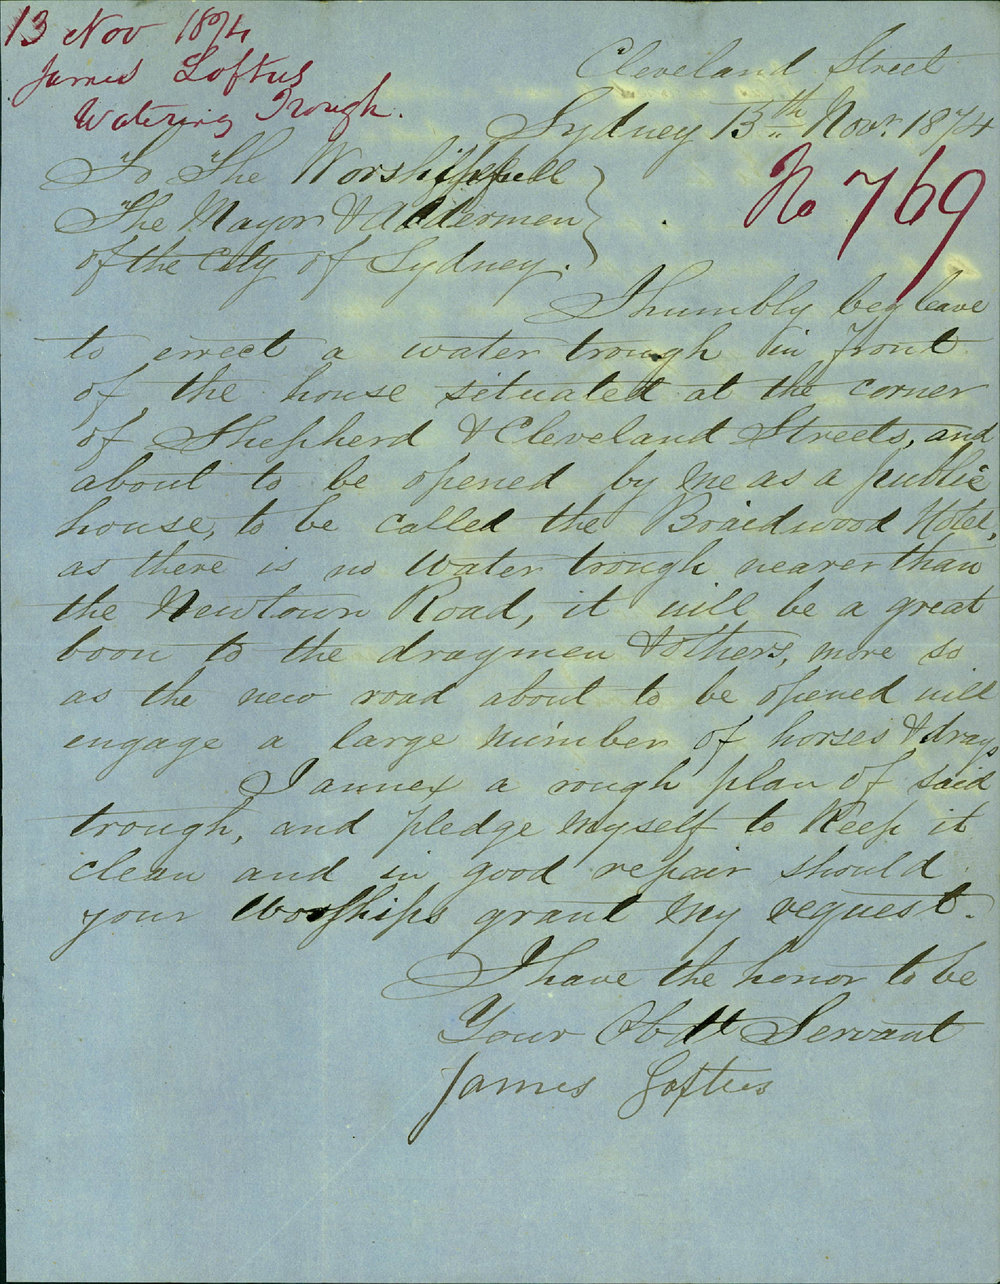 13 Nov 1874
James Loftus
Watering Trough.
Cleveland Street
Sydney 13th Novr. 1874
No 769
To The Worshipfull
The Mayor & Aldermen
of the City of Sydney.
I humbly beg leave
to errect a water trough in front
of the house situated at the corner
of Shepherd & Cleveland Streets, and
about to be opened by me as a public
house, to be called the Braidwood Hotel,
as there is no water trough nearer than
the Newtown Road, it will be a great
boon to the draymen & others, more so
as the new road about to be opened will
engage a large number of horses & drays
I annex a rough plan of said
trough, and pledge myself to keep it
clean and in good repair should
your Worships grant my request.
I have the honor to be
Your Obdt Servant
James Loftus